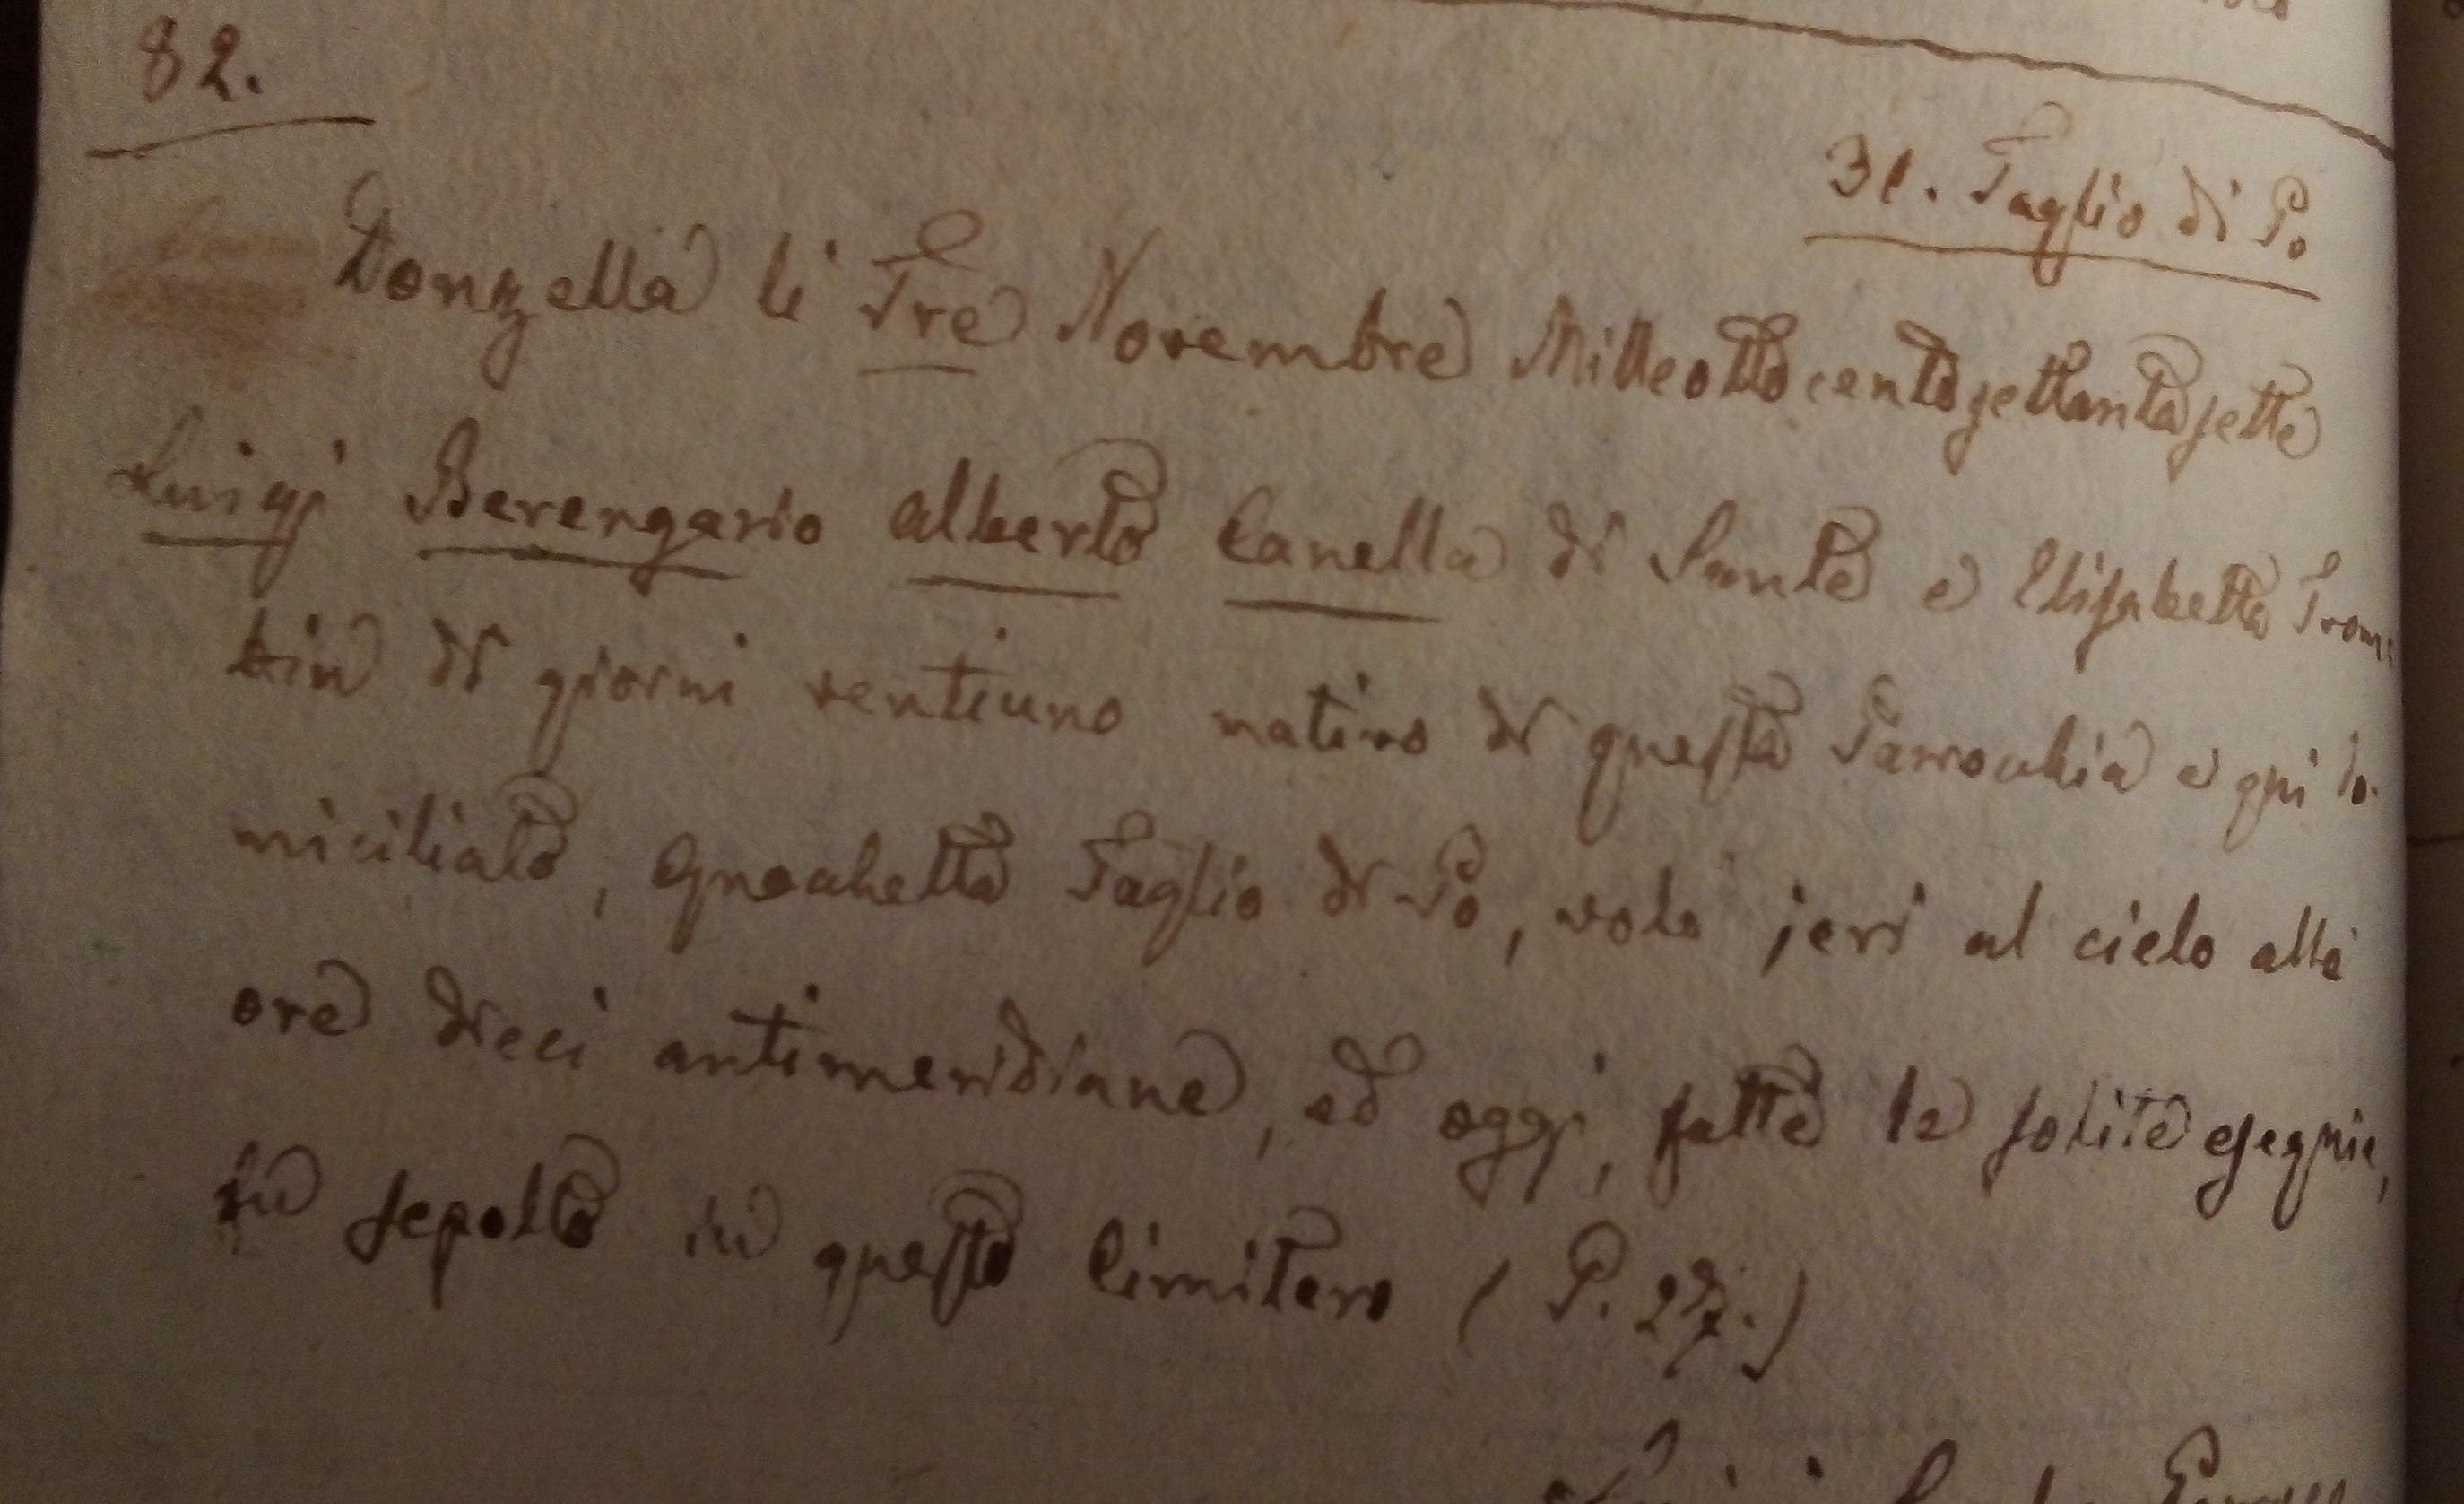 82.
31. Taglio di Po
Donzella li Tre Novembre Milleottocentosettantasette
Luigi Berengario Alberto Canella di Sante e Elisabetta Trom:
bin di giorni ventiuno nativo di questa Parrocchia e qui do.
miciliato, Gnocchetta Taglio di Po, volò jeri al cielo alle
ore dieci antimeridiane, ed oggi, fatte le solite esequie,
fu sepolto in questo Cimitero (P. 27.)